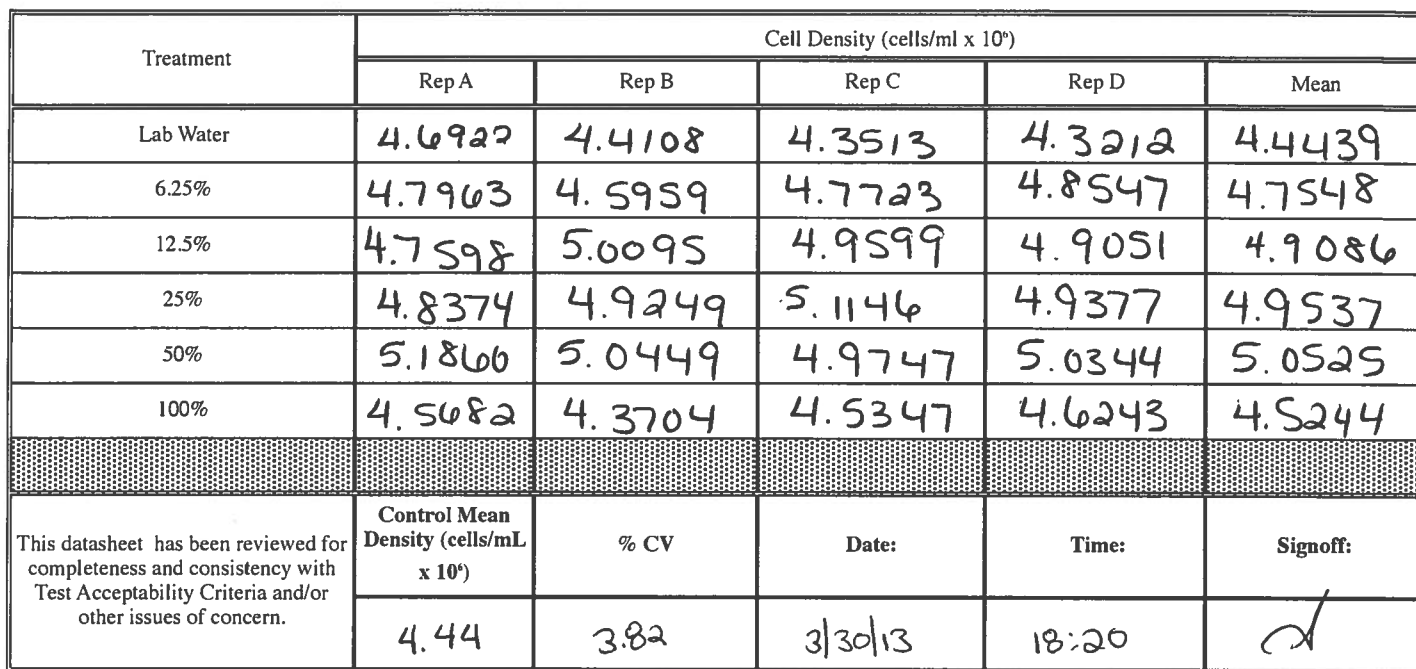 Treatment
Cell Density (cells/ml x 10⁶)
Rep A Rep B Rep C Rep D Mean
Lab Water 4.6922 4.4108 4.3513 4.3212 4.4439
6.25% 4.7963 4.5959 4.7723 4.8547 4.7548
12.5% 4.7598 5.0095 4.9599 4.9051 4.9086
25% 4.8374 4.9249 5.1146 4.9377 4.9537
50% 5.1860 5.0449 4.9747 5.0344 5.0525
100% 4.5682 4.3704 4.5347 4.6243 4.5244
This datasheet has been reviewed for
completeness and consistency with
Test Acceptability Criteria and/or
other issues of concern.
Control Mean
Density (cells/mL
x 10⁶)
% CV Date: Time: Signoff:
4.44 3.82 3/30/13 18:20